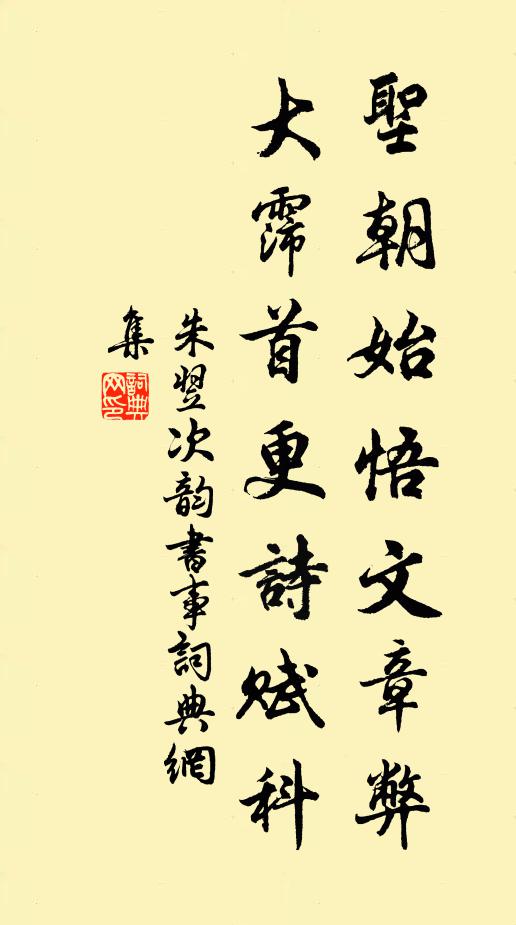 聖朝始悟文章弊
大霈首更詩賦科
朱翌次韵書事詞典網
集
詞典网印